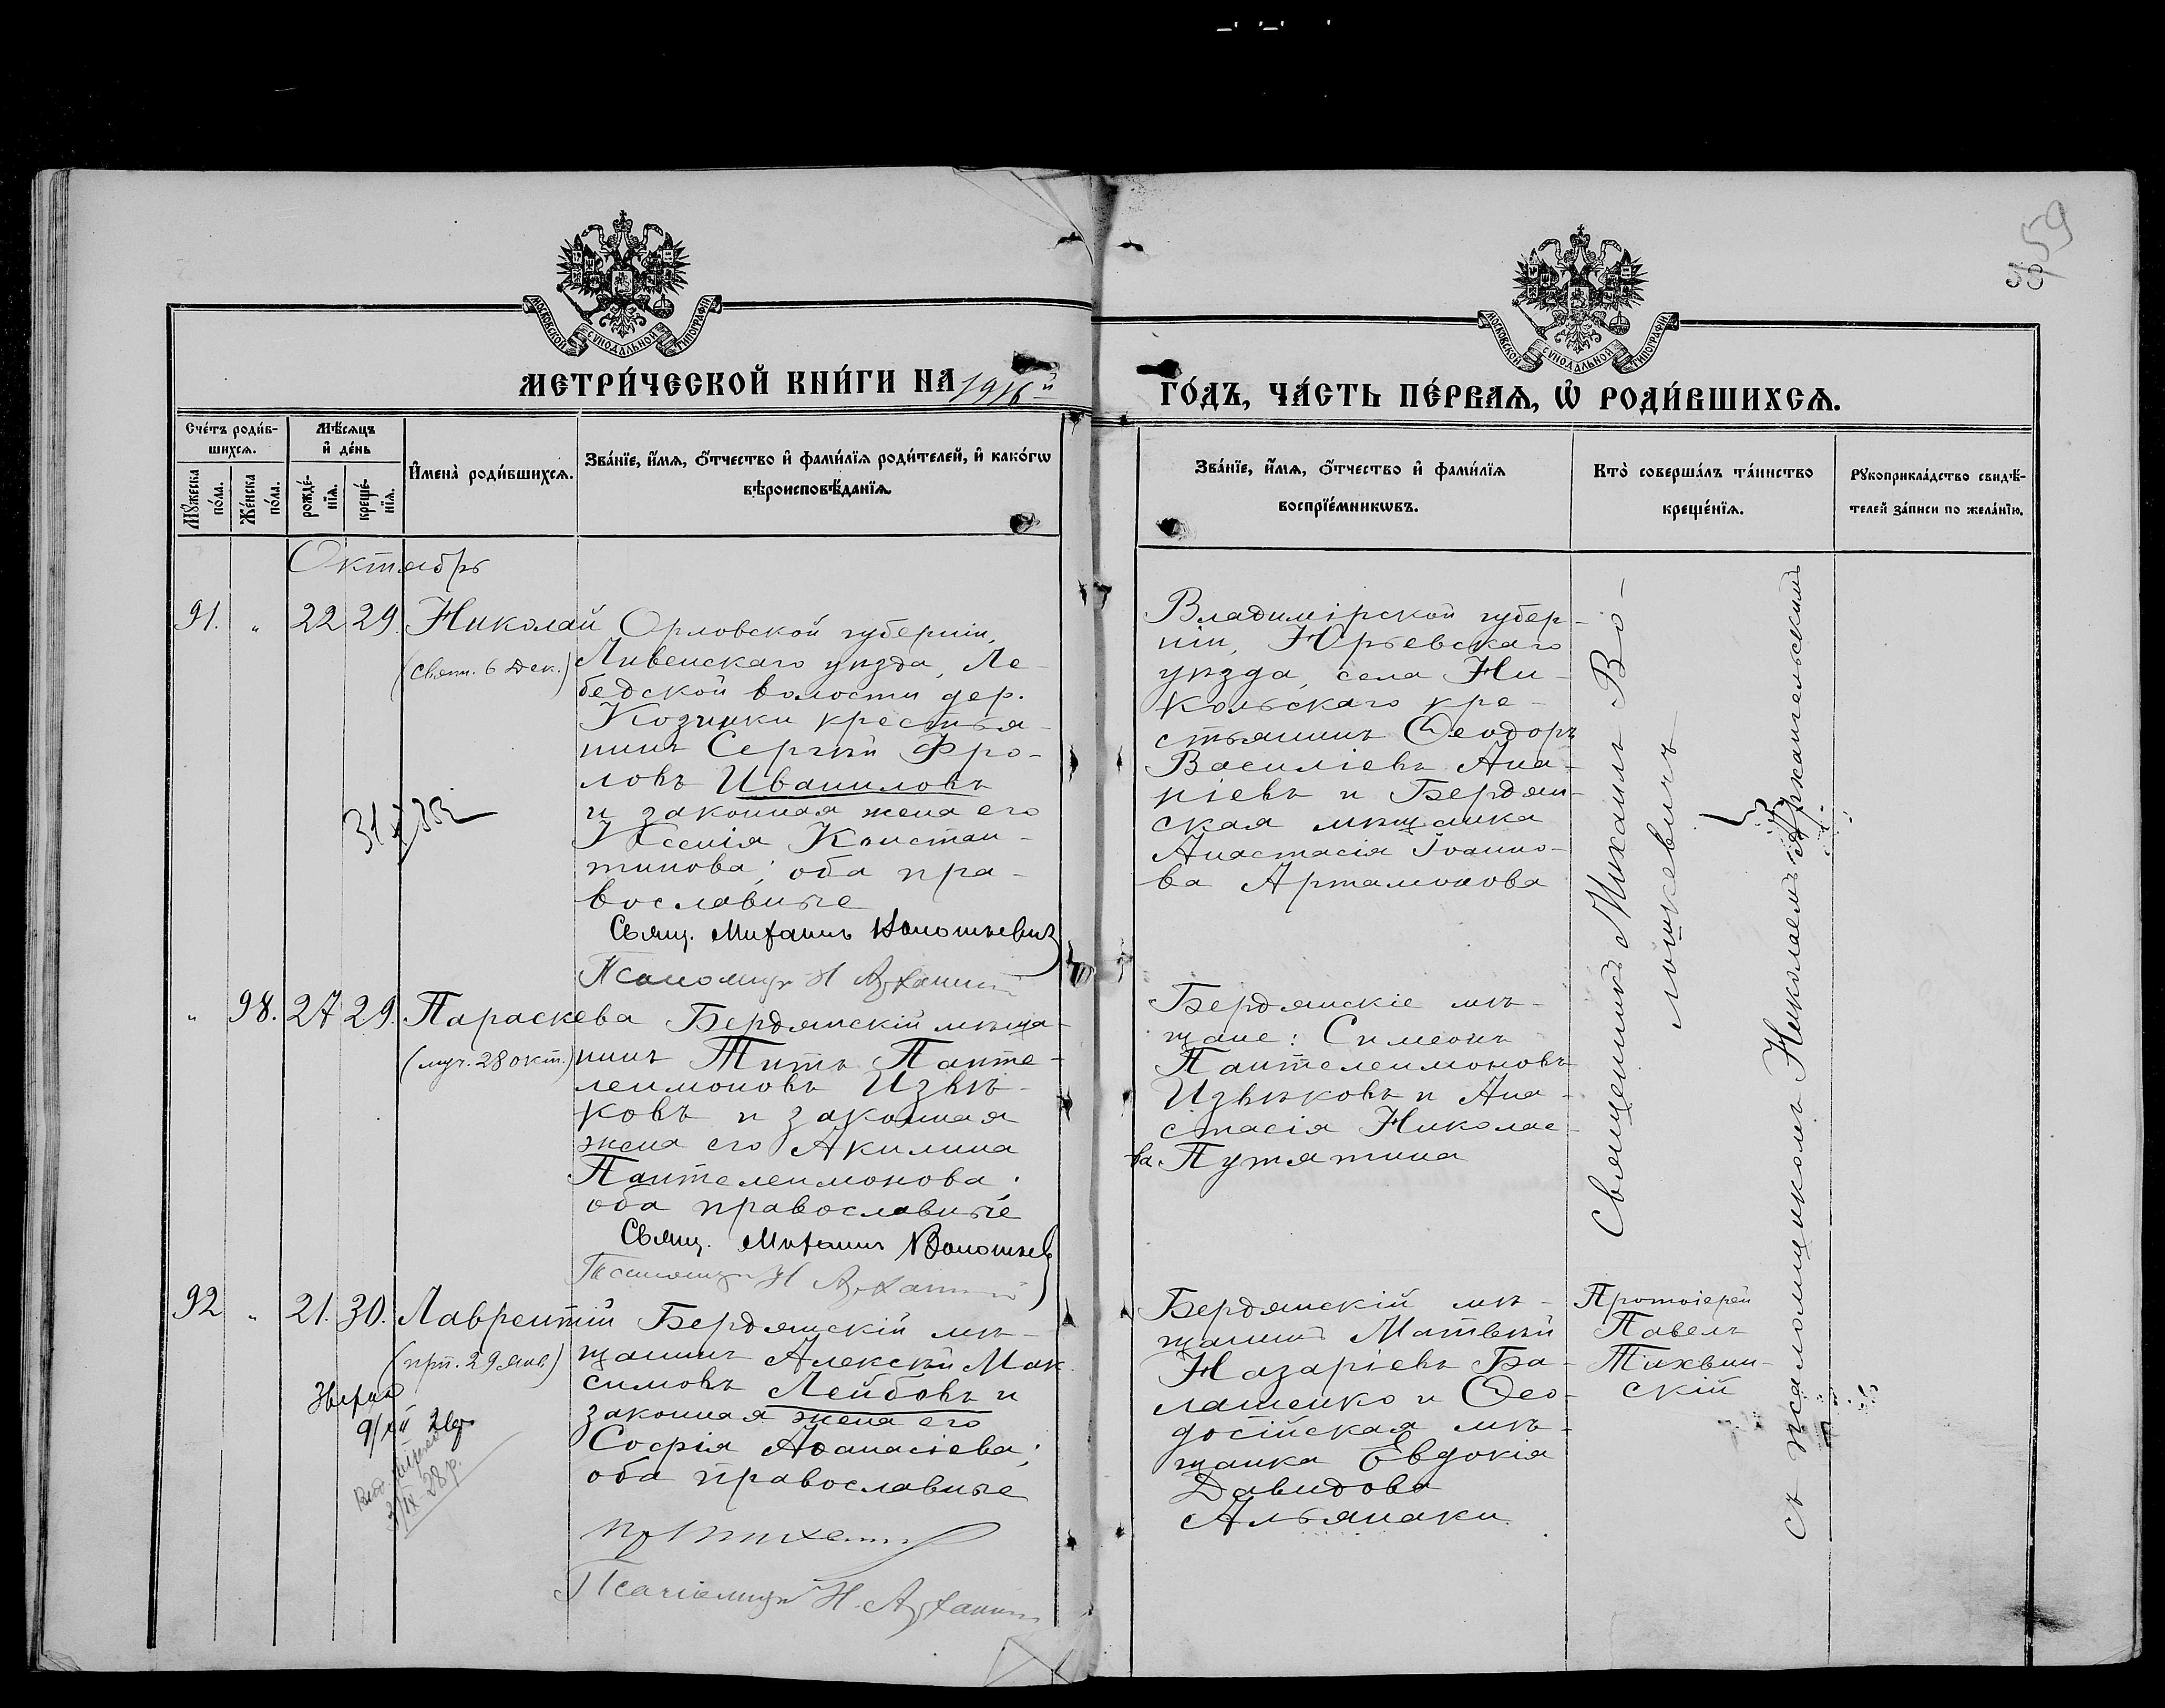 59
58
МОСКОВСКОЙ СУНОДАЛЬНОЙ ТИПОГРАФІИ
МОСКОВСКОЙ СУНОДАЛЬНОЙ ТИПОГРАФІИ
МЕТРИ́ЧЕСКОЙ КНИ́ГИ НА 1916й ГО́ДЪ, ЧА́СТЬ ПЕ́РВАѦ, Ѡ҆ РОДИ́ВШИХСѦ.
Сче́тъ роди́в-
шихсѧ.
Мꙋ́жеска по́ла.
Же́нска по́ла.
Мѣ́сѧцъ и҆ де́нь
рожде́-
нїѧ.
креще́-
нїѧ.
И҆мена̀ роди́вшихсѧ.
Зва́нїе, и҆́мѧ, ѻ҆́тчество и҆ фами́лїѧ роди́телей, и҆ како́гѡ
вѣроисповѣ́данїѧ.
Зва́нїе, и҆́мѧ, ѻ҆́тчество и҆ фами́лїѧ
воспрїе́мникѡвъ.
Кто̀ соверша́лъ та́инство
креще́нїѧ.
Рꙋкоприкла́дство свидѣ́-
телей за́писи по жела́нїю.
Октябрь
91. „ 22 29. Николай
(свят. 6 дек.)
Орловской губерніи,
Ливенскаго уѣзда, Ле-
бедской волости дер.
Козинки крестья-
нинъ Сергѣй Фро-
ловъ Иваниловъ
и законная жена его
Ксенія Констан-
тинова; оба пра-
вославные
Свящ. Михаилъ Волошкевичъ
Псаломщ. Н. Архан
Владимірской губер-
ніи, Юрьевскаго
уѣзда, села Ни-
кольскаго кре-
стьянинъ Ѳеодоръ
Василіевъ Ана-
ніевъ и Бердян-
ская мѣщанка
Анастасія Іоанно-
ва Артамонова
Священникъ Михаилъ Во-
лошкевичъ
съ псаломщикомъ Николаемъ Архангельскимъ
„ 98. 27 29. Параскева
(муч. 28 окт.)
Бердянскій мѣща-
нинъ Титъ Панте-
леимоновъ Извѣ-
ковъ и законная
жена его Акилина
Пантелеимонова;
оба православные
Свящ. Михаилъ Волошкев
Псаломщ. Н. Архан
Бердянскіе мѣ-
щане: Симеонъ
Пантелеимоновъ
Извѣковъ и Ана-
стасія Николае-
ва Путятина
92 „ 21. 30. Лаврентій
(прп. 29 янв)
Бердянскій мѣ-
щанинъ Алексѣй Мак-
симовъ Лейбовъ и
законная жена его
Софія Аѳанасіева;
оба православные
Псаломщ. Н. Архан
Бердянскій мѣ-
щанинъ Матвѣй
Назаріевъ Ба-
лашенко и Ѳео-
досійская мѣ-
щанка Евдокія
Давидова
Альянаки
Протоіерей
Павелъ
Тихвин-
скій